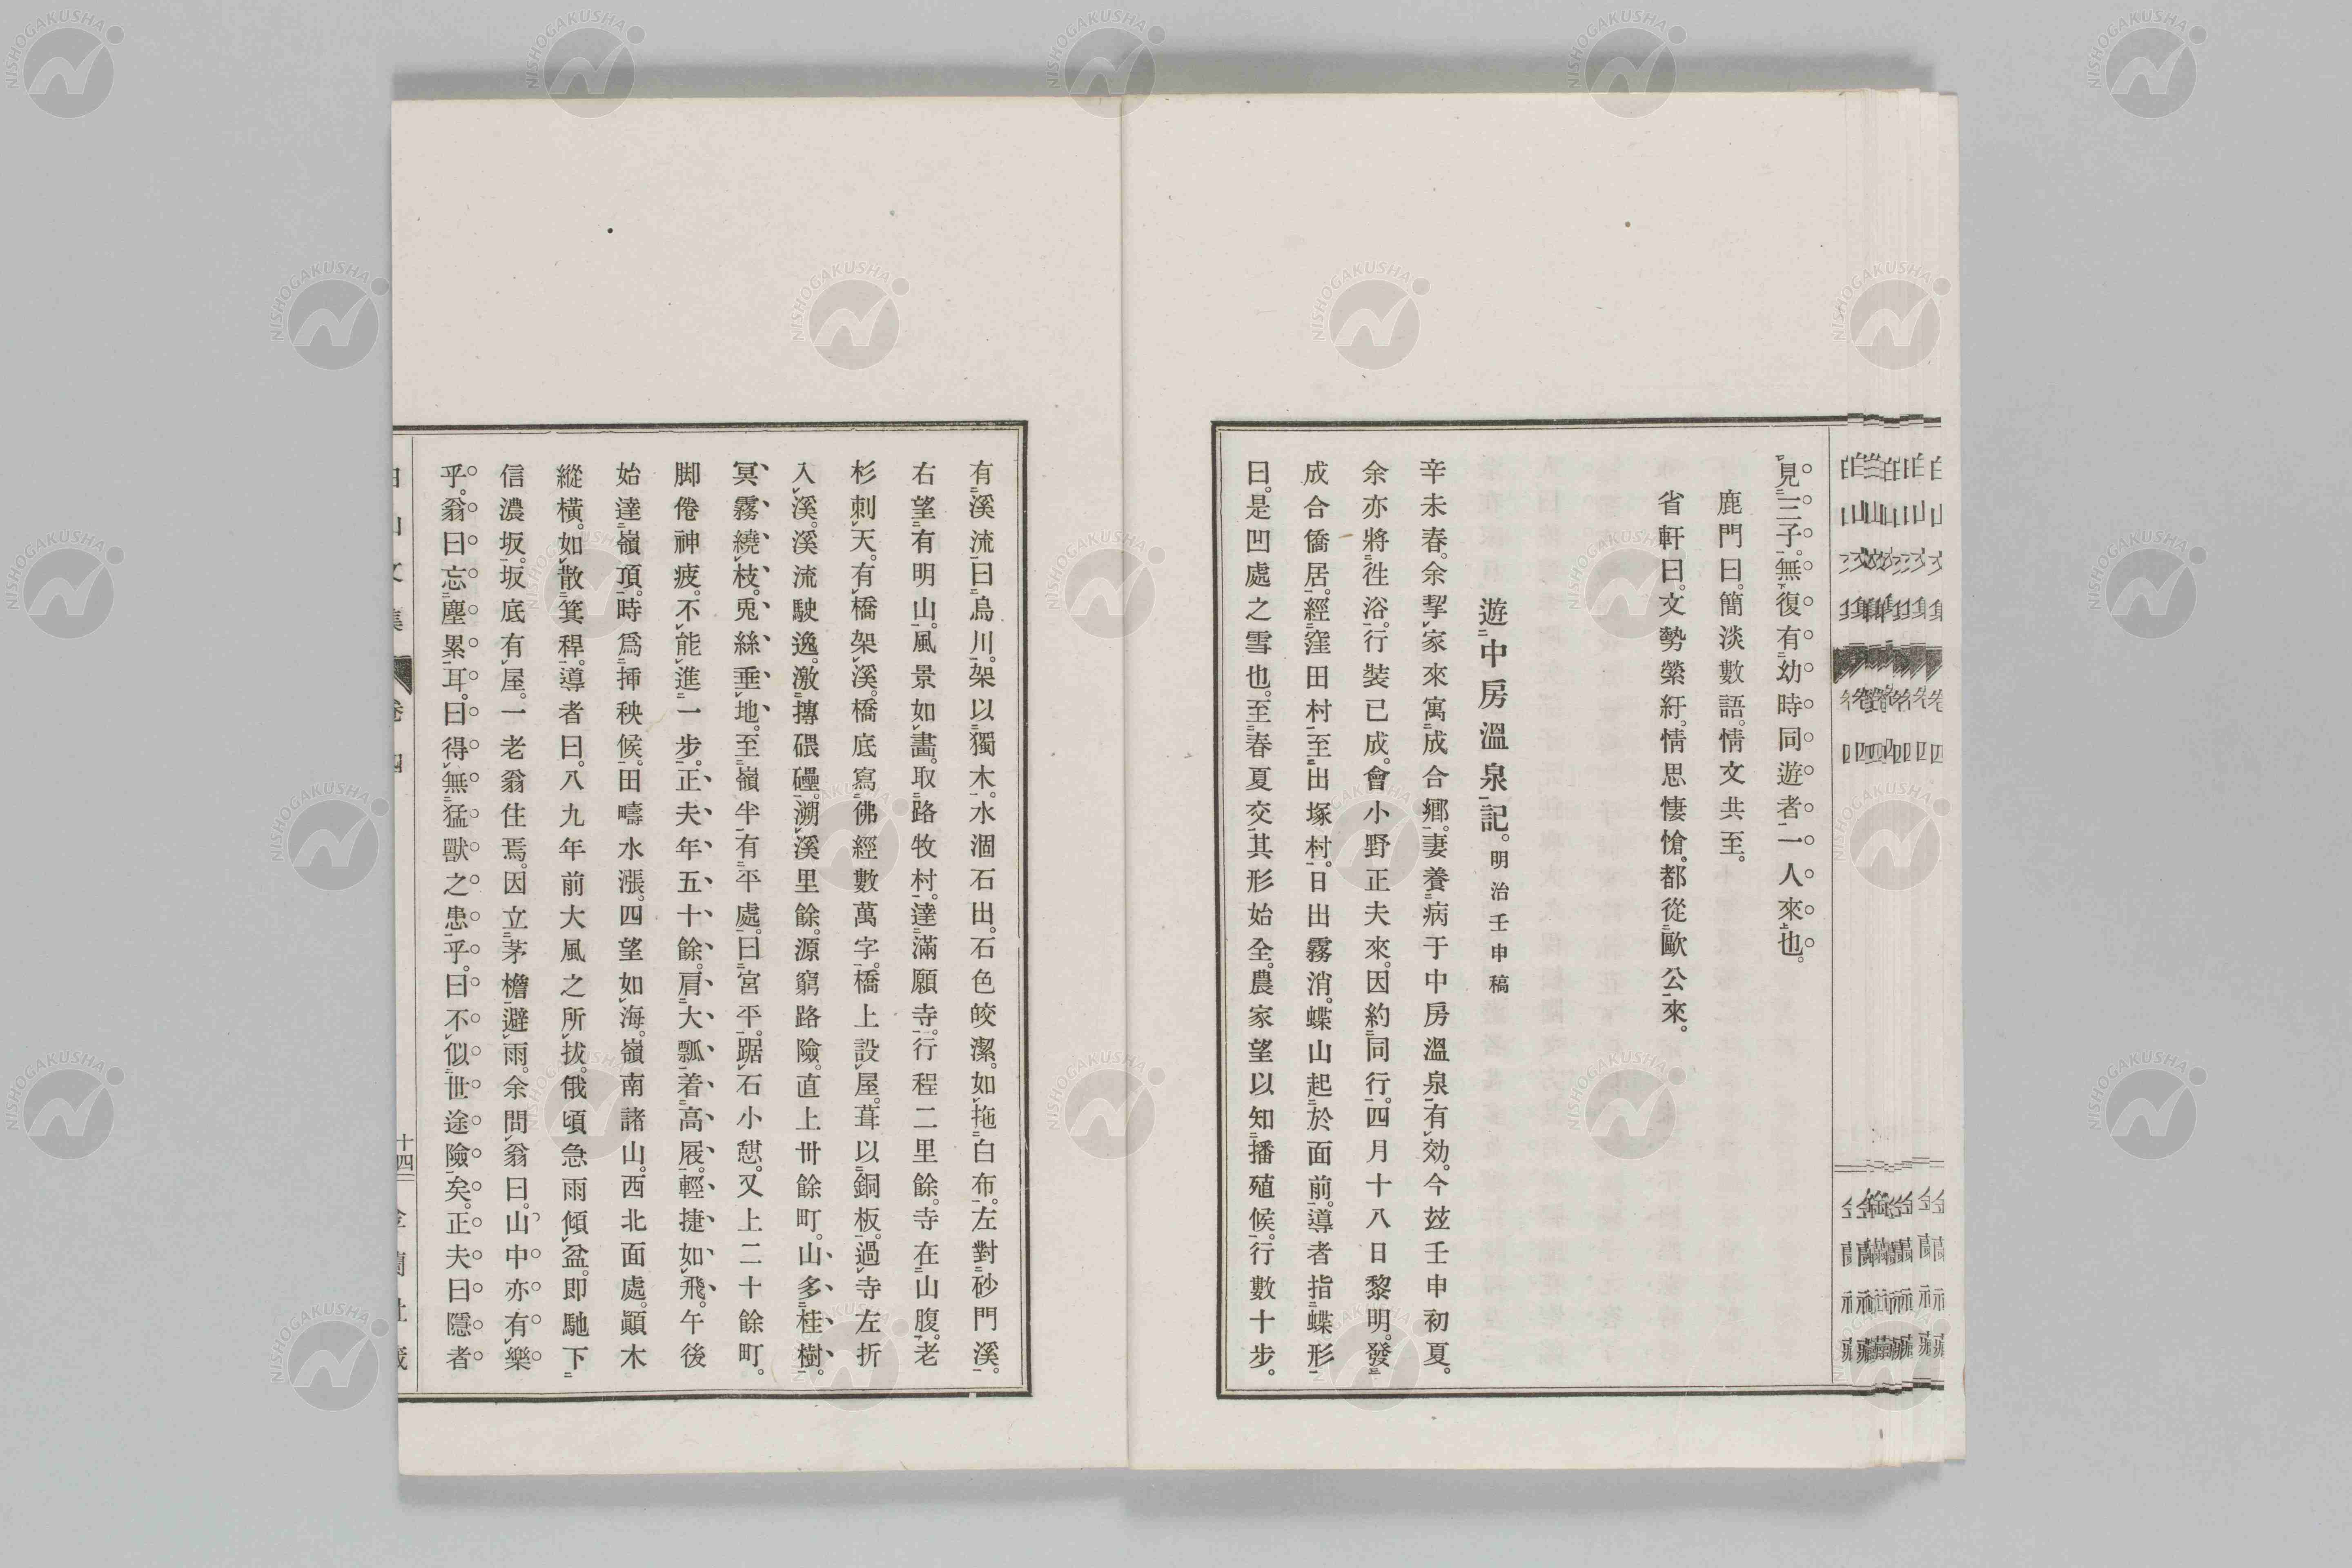 見三子。無復有幼時同遊者一人來也。
鹿門曰。簡淡數語。情文共至。
省軒曰。文勢縈紆。情思悽愴。都從歐公來。
遊中房溫泉記。明治壬申稿
辛未春。余挈家來寓成合鄕。妻養病于中房溫泉有効。今玆壬申初夏。
余亦將徃浴。行裝已成。會小野正夫來。因約同行。四月十八日黎明。發
成合僑居。經窪田村至出塚村。日出霧消。蝶山起於面前。導者指蝶形
曰。是凹處之雪也。至春夏交。其形始全。農家望以知播殖候。行數十步。
有溪流。曰烏川。架以獨木。水涸石出。石色皎潔。如拖白布。左對砂門溪。
右望有明山。風景如畵。取路牧村。達滿願寺。行程二里餘。寺在山腹。老
杉刺天。有橋架溪。橋底寫佛經數萬字。橋上設屋。葺以銅板。過寺左折
入溪。溪流駛逸。激搏碨礧。溯溪里餘。源窮路險。直上丗餘町。山多桂樹。
冥霧繞枝。兎絲垂地。至嶺半有平處。曰宮平。踞石小憇。又上二十餘町。
脚倦神疲。不能進一步。正夫年五十餘。肩大瓢。着高屐。輕捷如飛。午後
始達嶺頂。時爲揷秧候。田疇水漲。四望如海。嶺南諸山。西北面處。顚木
縱橫。如散箕稈。導者曰。八九年前大風之所拔。俄頃急雨傾盆。即馳下
信濃坂。坂底有屋。一老翁住焉。因立茅檐避雨。余問翁曰。山中亦有樂
乎。翁曰忘塵累耳。曰得無猛獸之患乎。曰不似世途險矣。正夫曰隱者
卷四
十四